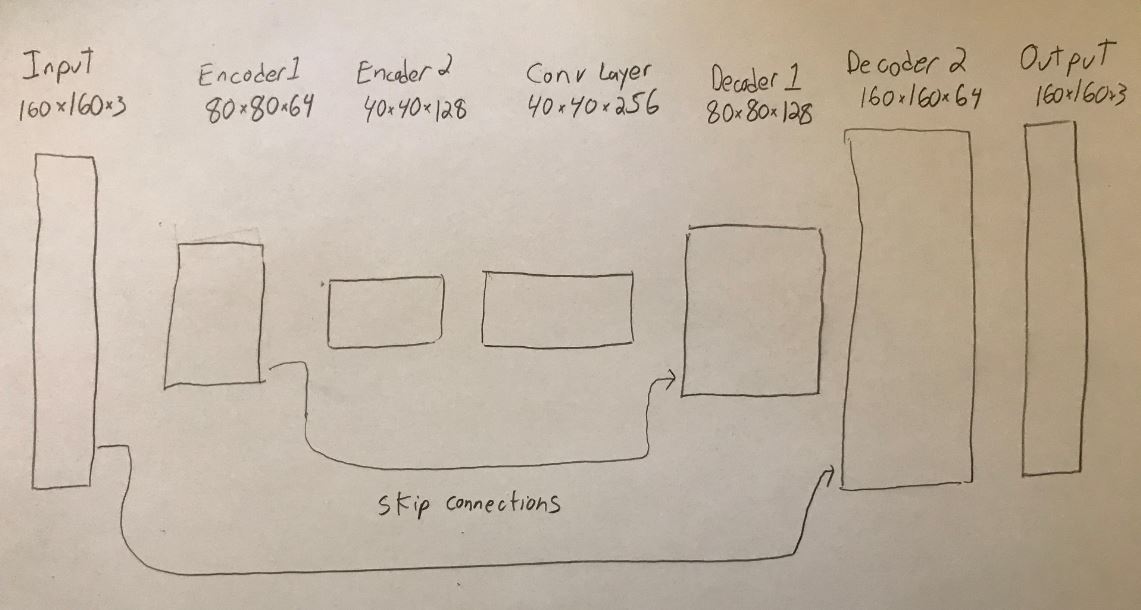 Input
160×160×3
Encoder1
80×80×64
Encoder 2
40×40×128
Conv Layer
40×40×256
Decoder 1
80×80×128
Decoder 2
160×160×64
Output
160×160×3
skip connections